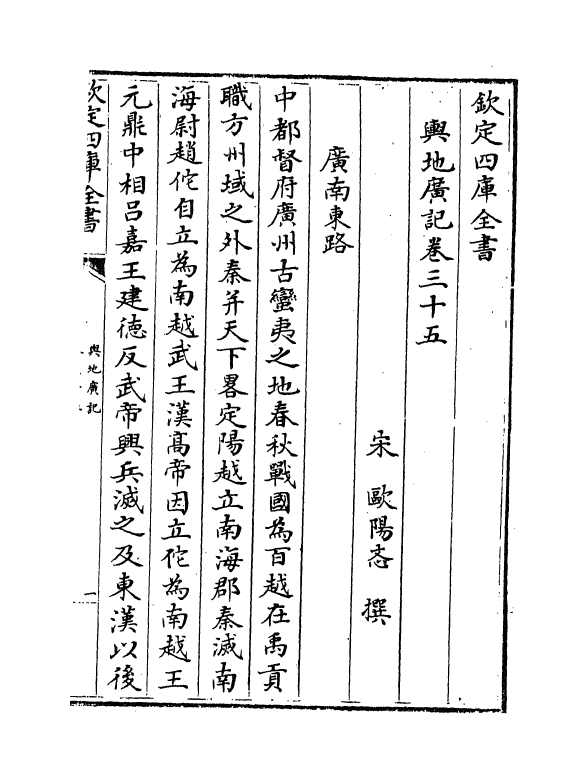 欽定四庫全書
輿地廣記卷三十五
宋 歐陽忞 撰
廣南東路
中都督府廣州古蠻夷之地春秋戰國為百越在禹貢
職方州域之外秦并天下畧定陽越立南海郡秦滅南
海尉趙佗自立為南越武王漢高帝因立佗為南越王
元鼎中相吕嘉王建德反武帝興兵滅之及東漢以後
欽定四庫全書
輿地廣記
一